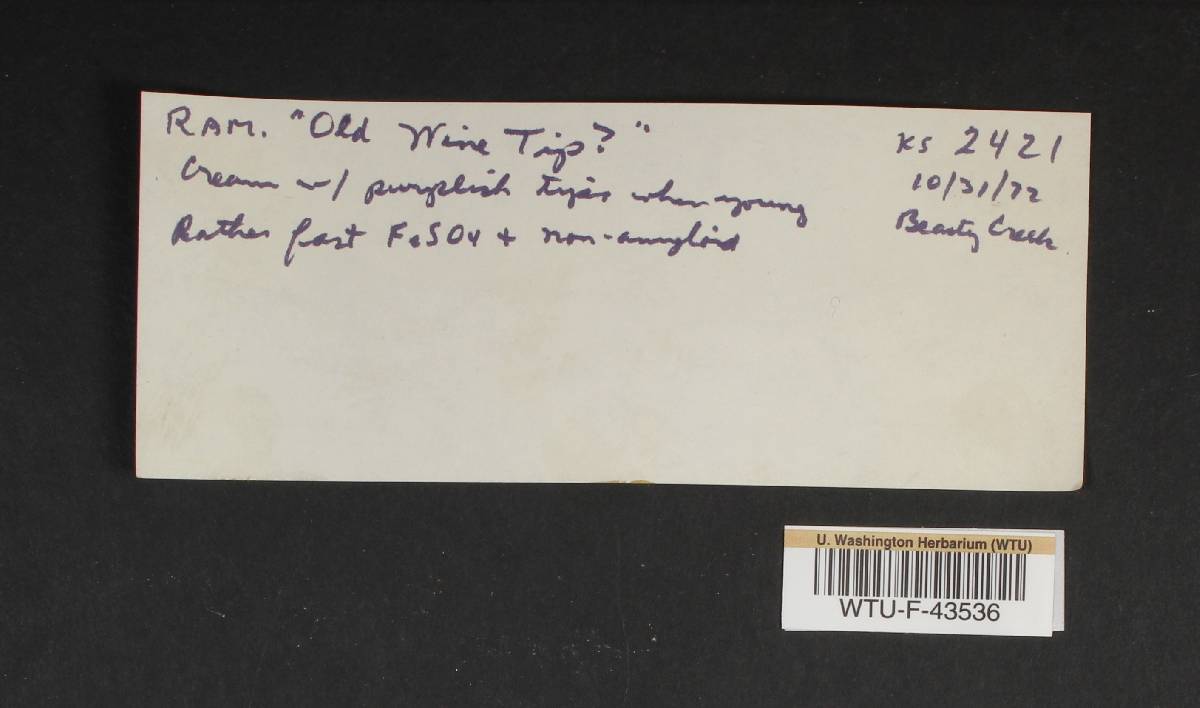 RAM. "Old Wine Tip?"
Cream w/ purplish tips when young
Rather fast FeSO4 + non-amyloid
KS 2421
10/31/72
Beauty Creek
U. Washington Herbarium (WTU)
WTU-F-43536